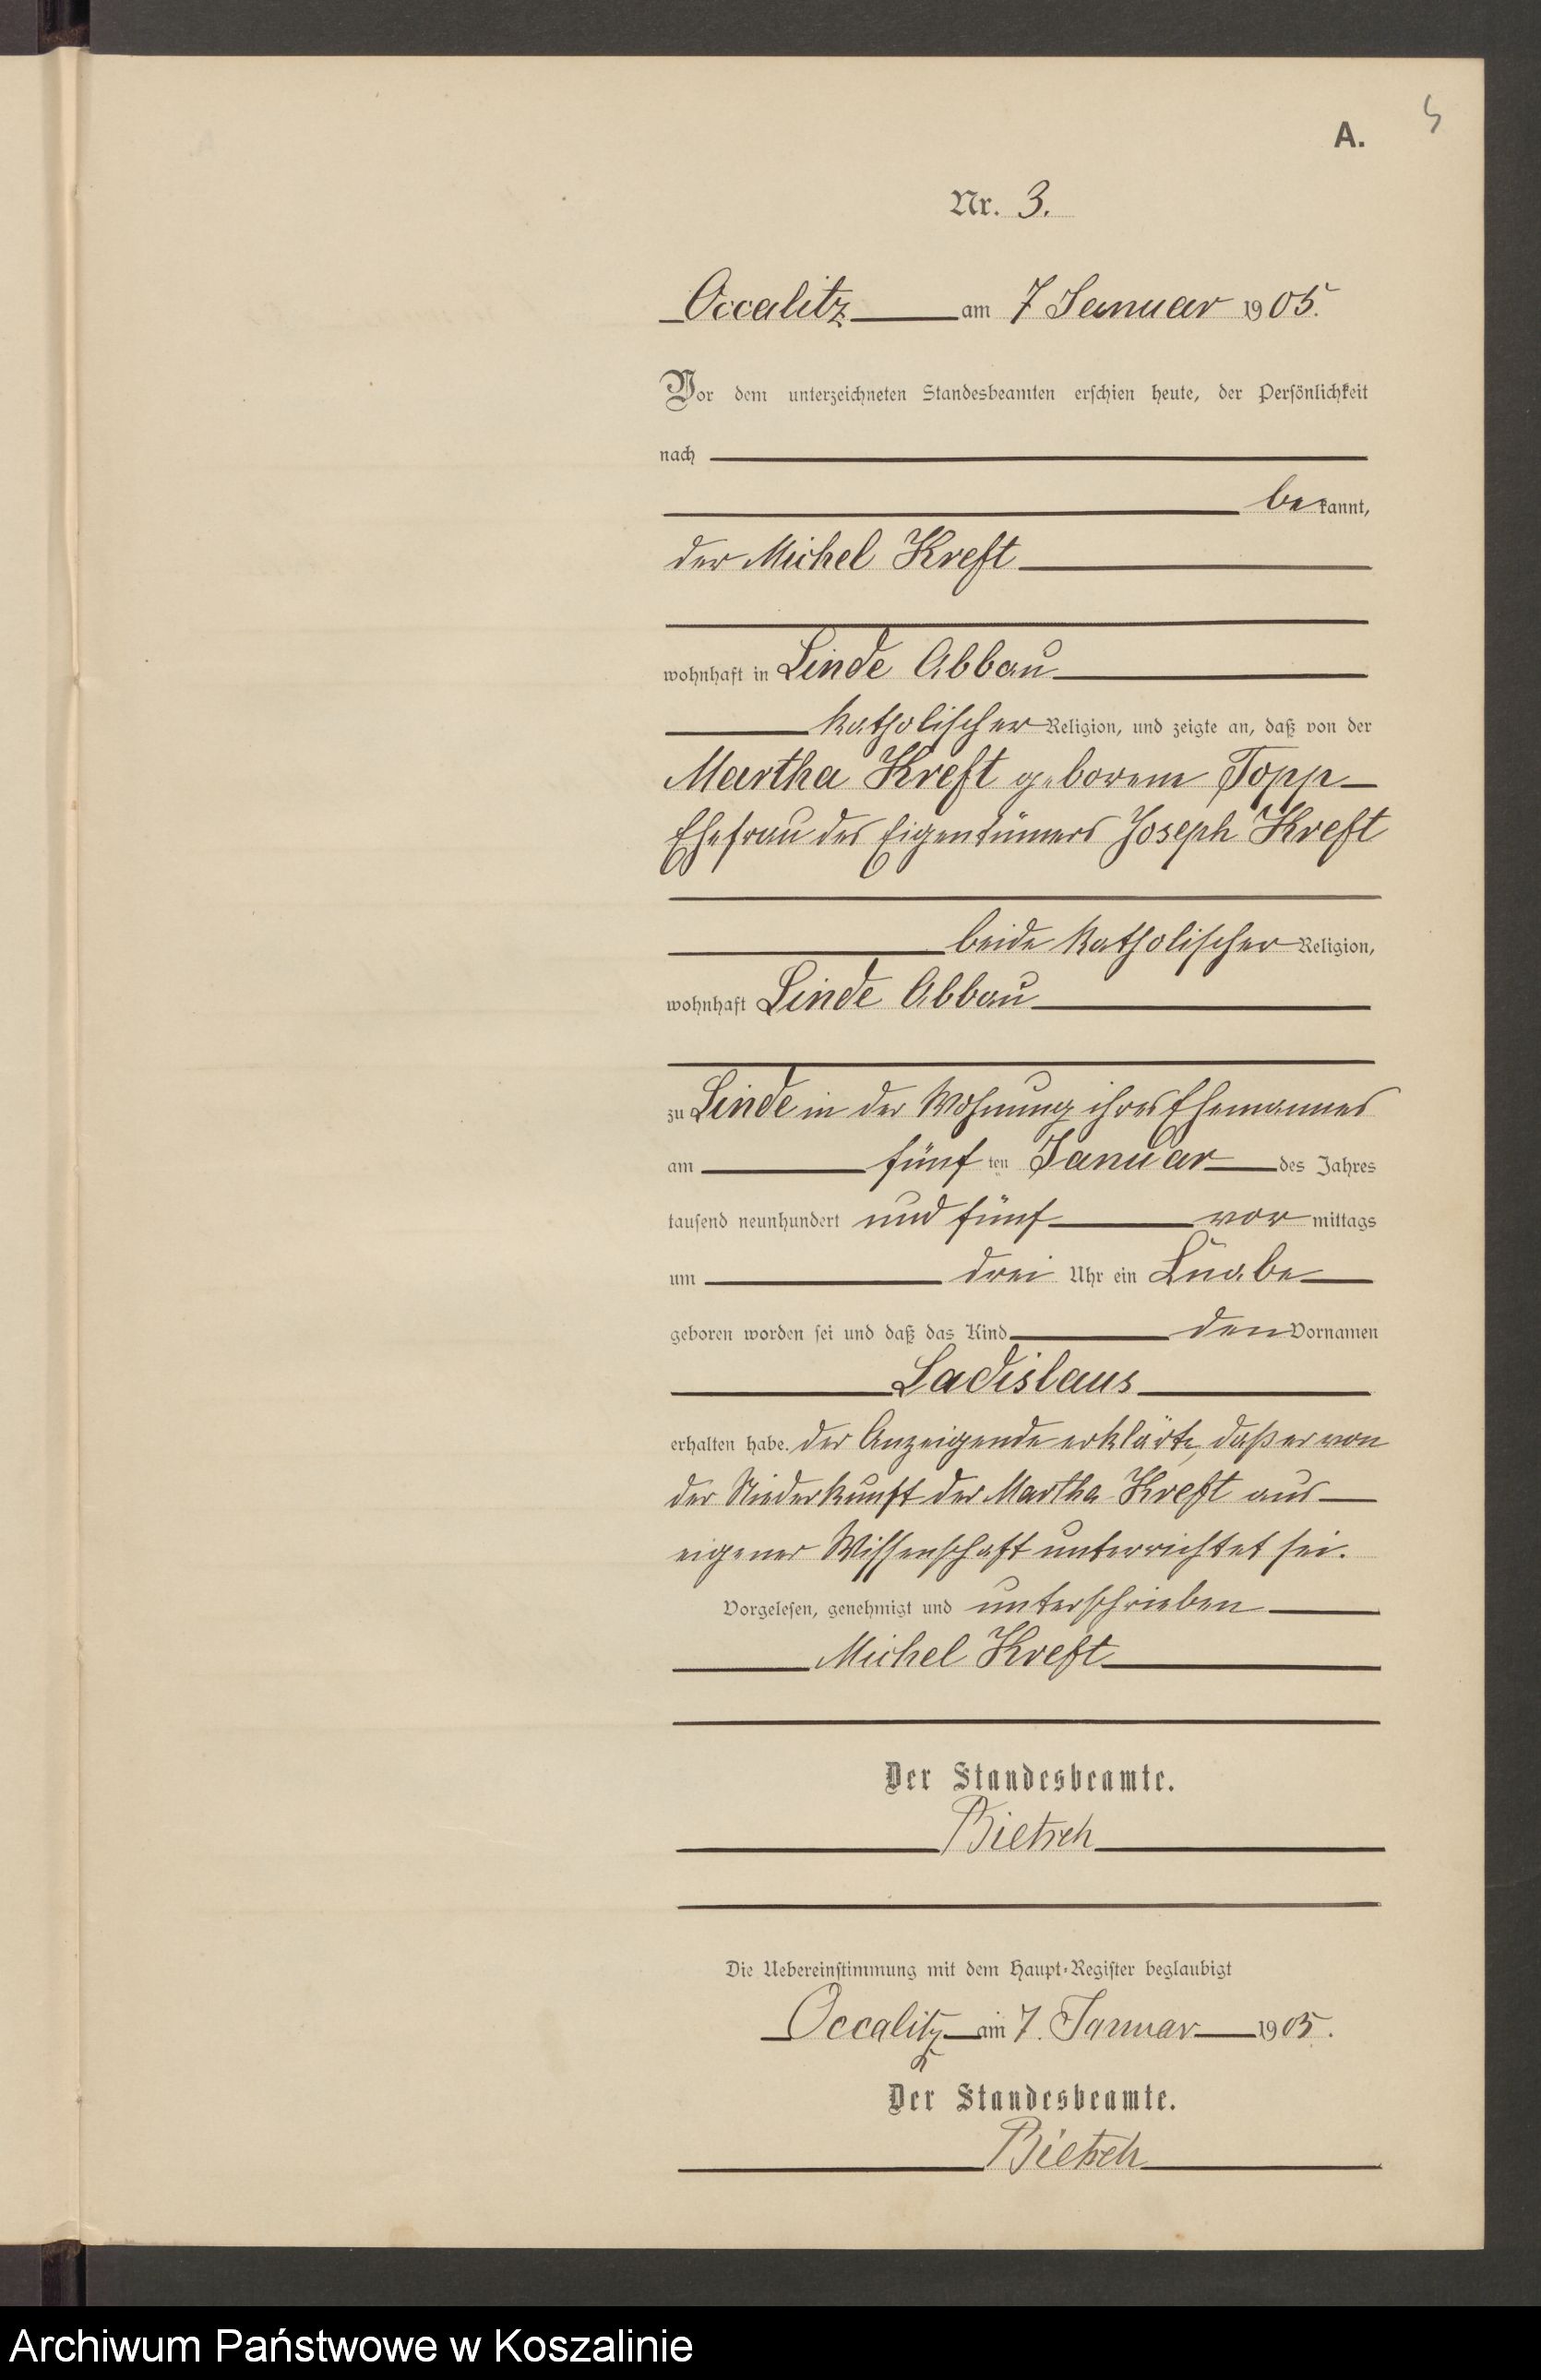 5
A.
Nr. 3.
Occalitz am 7 Januar 1905.
Vor dem unterzeichneten Standesbeamten erschien heute, der Persönlichkeit
nach
bekannt,
der Michel Kreft
wohnhaft in Linde Abbau
katholischer Religion, und zeigte an, daß von der
Martha Kreft geborene Topp
Ehefrau des Eigentümers Joseph Kreft
beide katholischer Religion,
wohnhaft Linde Abbau
zu Linde in der Wohnung ihres Ehemannes
am fünften Januar des Jahres
tausend neunhundert und fünf vormittags
um drei Uhr ein Knabe
geboren worden sei und daß das Kind den Vornamen
Ladislaus
erhalten habe. der Anzeigende erklärte, daß er von
der Niederkunft der Martha Kreft aus
eigener Wissenschaft unterrichtet sei.
Vorgelesen, genehmigt und unterschrieben
Michel Kreft
Der Standesbeamte.
Bietsch
Die Uebereinstimmung mit dem Haupt-Register beglaubigt
Occalitz am 7. Januar 1905.
Der Standesbeamte.
Bietsch
Archiwum Państwowe w Koszalinie